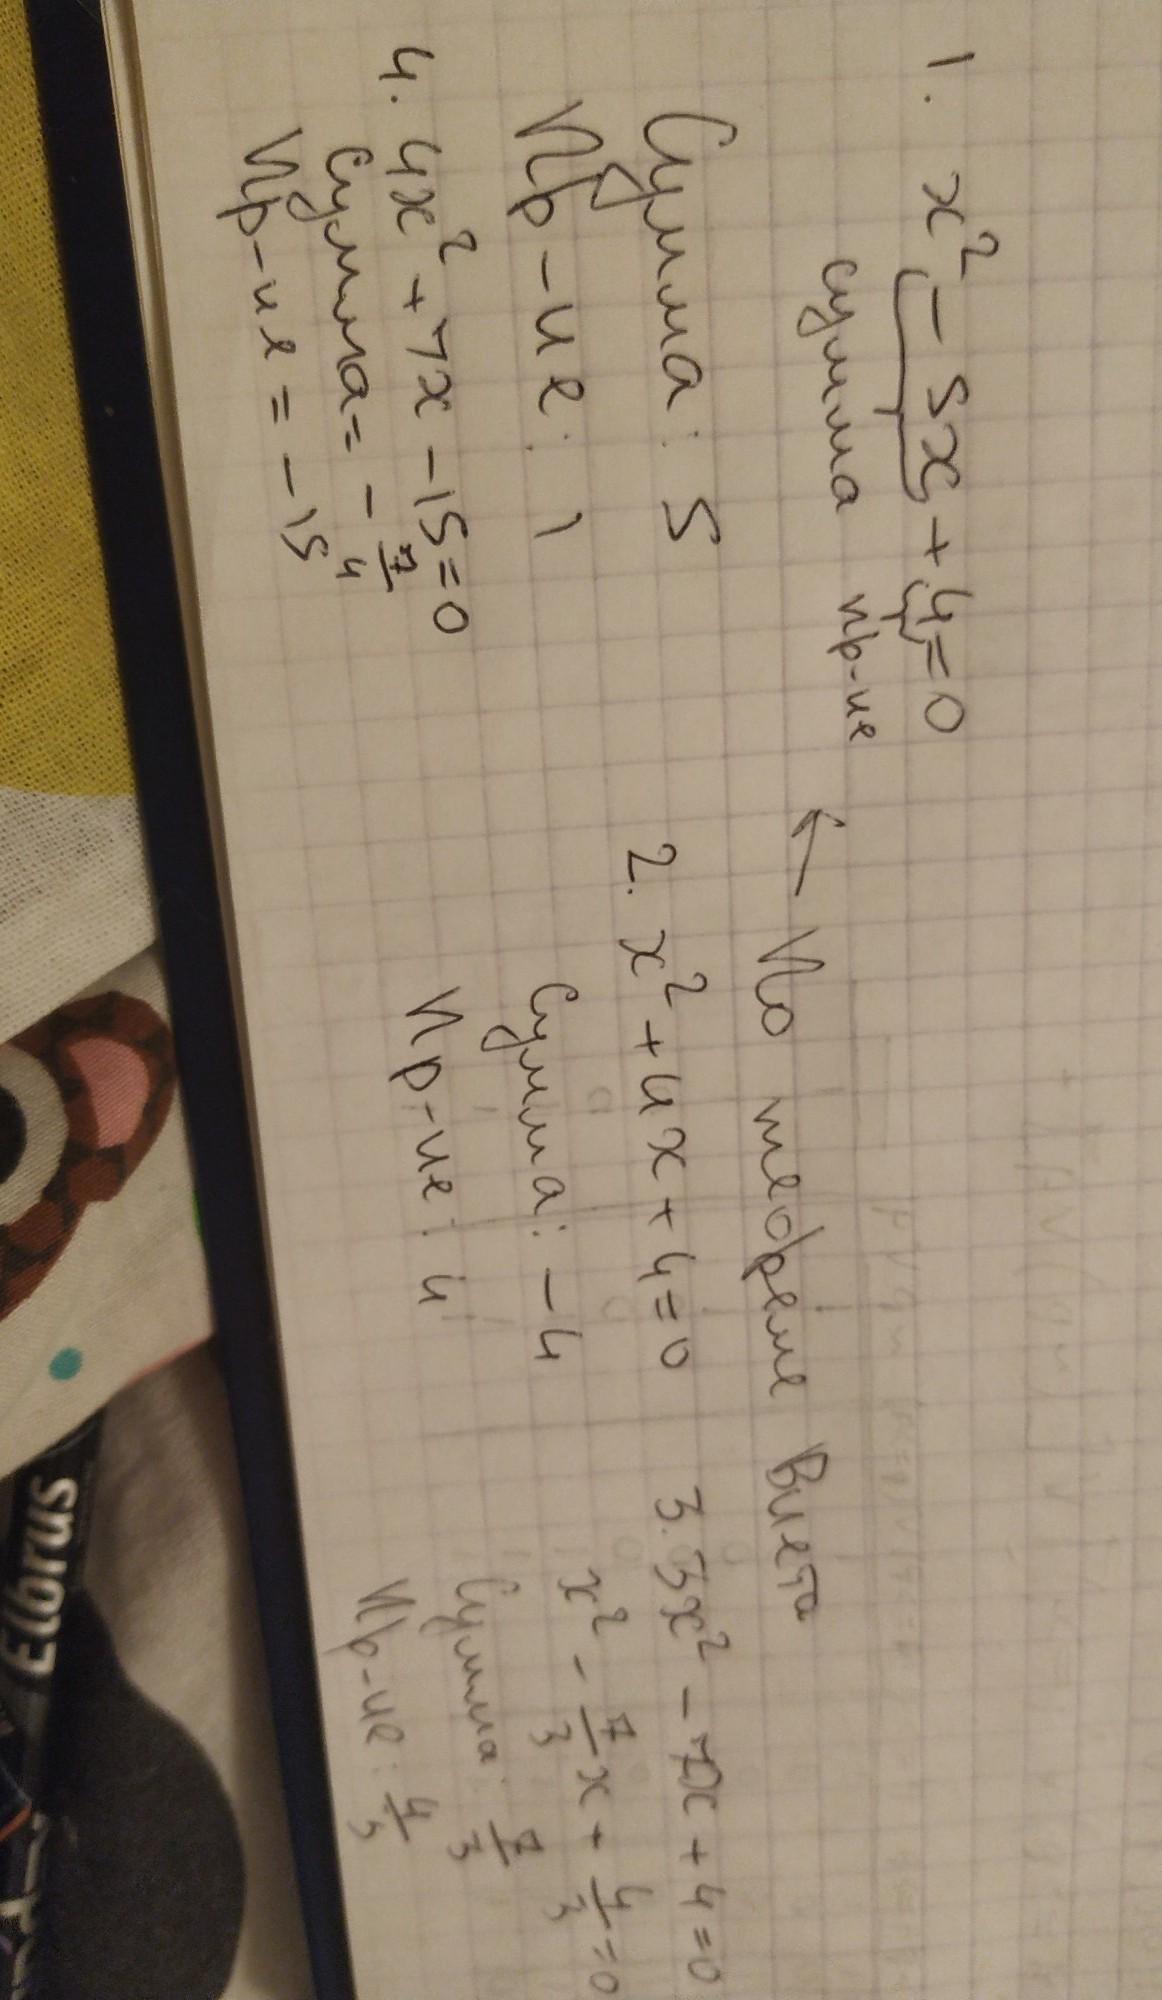 1. x² - 5x + 4 = 0
сумма пр-ие
← По теореме Виета
Сумма: 5
Пр-ие: 1
2. x² + 4x + 4 = 0
Сумма: -4
Пр-ие: 4
3. 3x² - 7x + 4 = 0
x² - 7/3 x + 4/3 = 0
Сумма: 7/3
Пр-ие: 4/3
4. 4x² + 7x - 15 = 0
Сумма = - 7/4
Пр-ие = -15
Elbrus